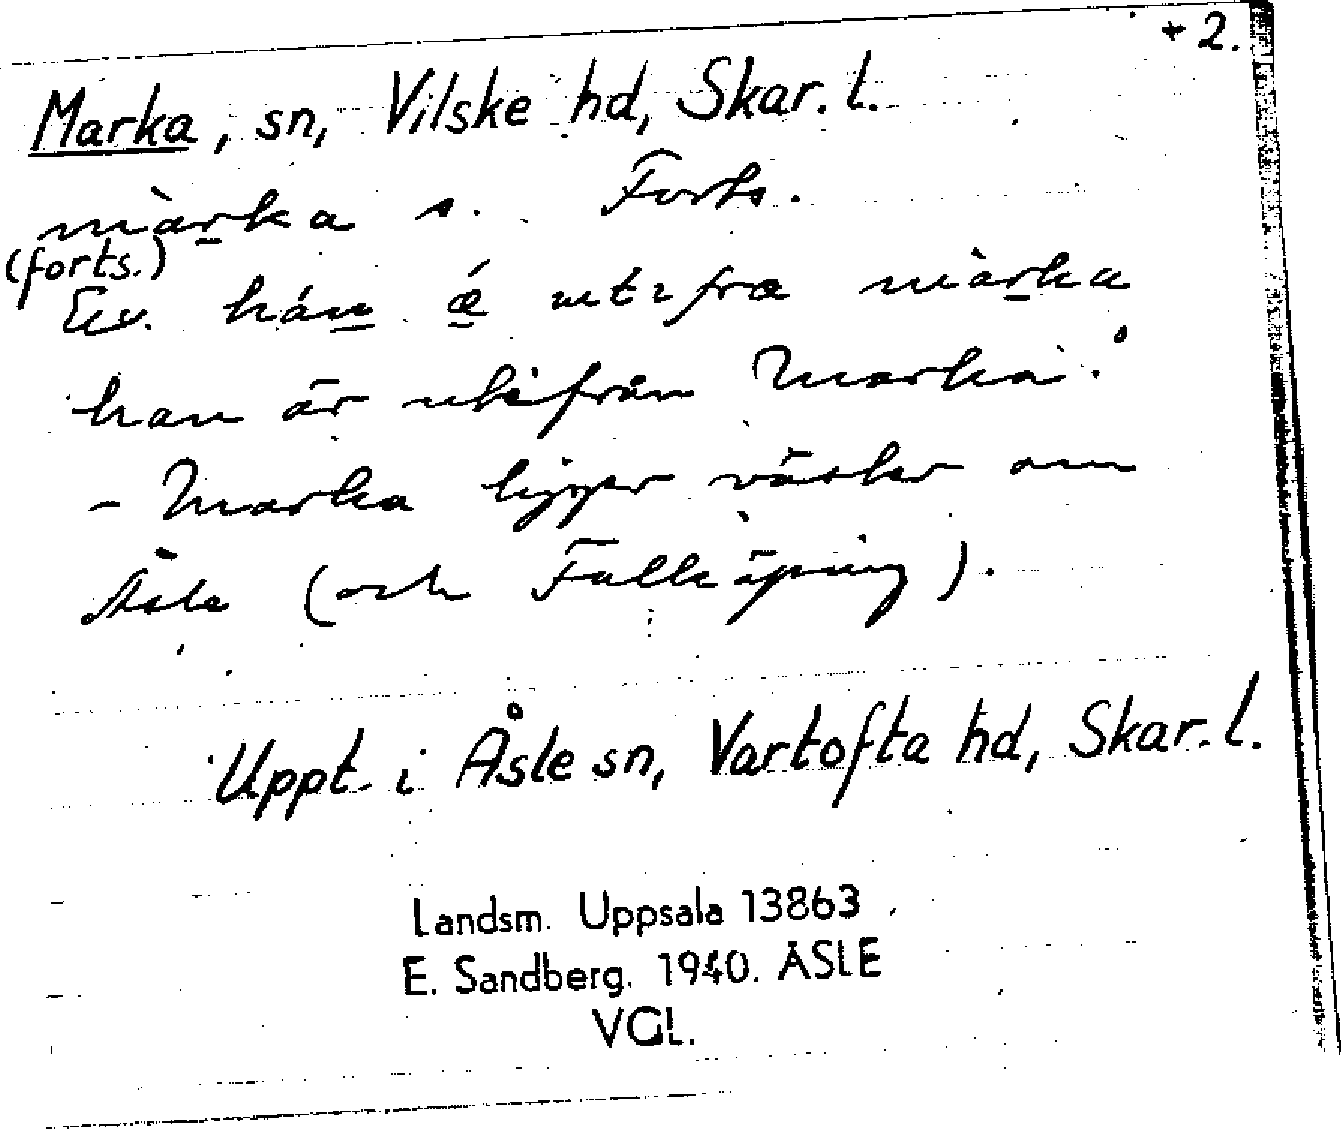 + 2.
Marka, sn, Vilske hd, Skar. l.
màrka s. Forts.
(forts.)
Ex. hán ǽ utifra màrka
han är utifrån Marka.
- Marka ligger väster om
Åsle (och Falköping).
Uppt. i Åsle sn, Vartofta hd, Skar. l.
Landsm. Uppsala 13863
E. Sandberg. 1940. ÅSLE
VGL.